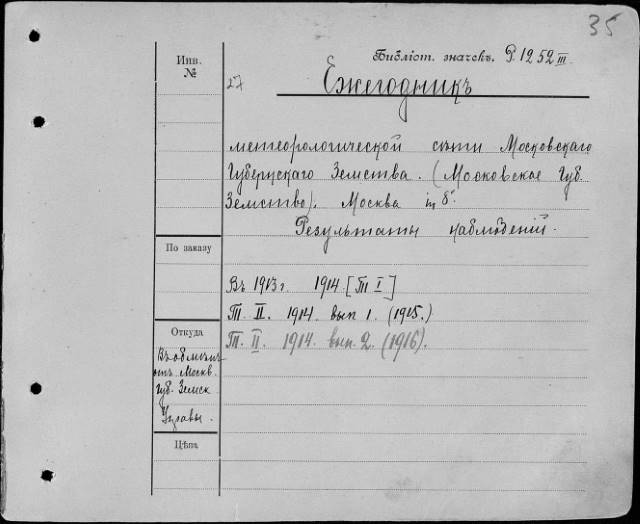 35
Библіот. значекъ. P. 1252 III
Инв.
№
27
Ежегодникъ
метеорологической сѣти Московскаго
Губернскаго Земства. (Московское Губ.
Земство). Москва in 8°.
Результаты наблюденій.
По заказу
Въ 1913 г. 1914 [Т I]
Т. II. 1914. вып 1. (1915.)
Т. II. 1914. вып. 2. (1916).
Откуда
Въ обмѣнъ
отъ Москв.
Губ. Земск
Управы.
Цѣна